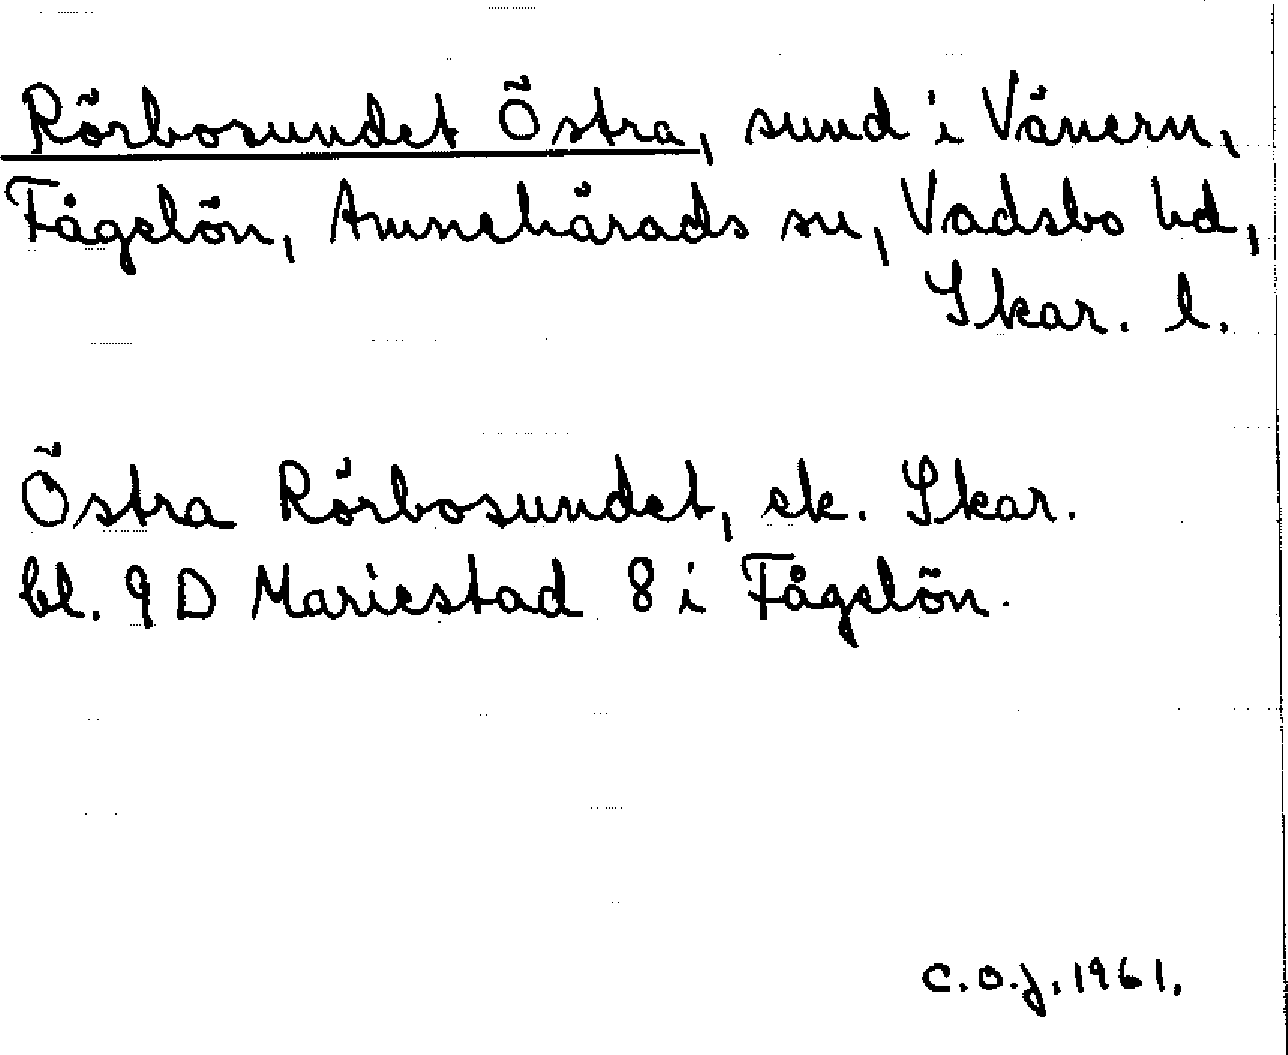 Rörbosundet Östra, sund i Vänern,
Fågelön, Amnehärads sn, Vadsbo hd,
Skar. l.
Östra Rörbosundet, ek. Skar.
bl. 9 D Mariestad 8 i Fågelön.
C.O.J. 1961.